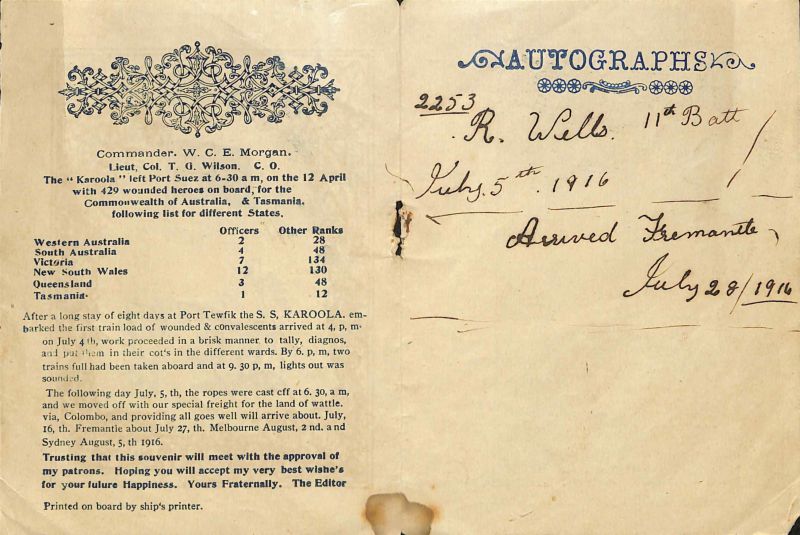 Commander. W. C. E. Morgan.
Lieut, Col. T. G. Wilson. C. O.
The "Karoola" left Port Suez at 6-30 a m, on the 12 April
with 429 wounded heroes on board, for the
Commonwealth of Australia, & Tasmania.
following list for different States.
Officers Other Ranks
Western Australia 2 28
South Australia 4 48
Victoria 7 134
New South Wales 12 130
Queensland 3 48
Tasmania. 1 12
After a long stay of eight days at Port Tewfik the S. S, KAROOLA. em-
barked the first train load of wounded & convalescents arrived at 4, p, m.
on July 4 th, work proceeded in a brisk manner to tally, diagnos,
and put them in their cot's in the different wards. By 6. p, m, two
trains full had been taken aboard and at 9. 30 p, m, lights out was
sounded.
The following day July, 5, th, the ropes were cast cff at 6. 30, a m,
and we moved off with our special freight for the land of wattle.
via, Colombo, and providing all goes well will arrive about. July,
16, th. Fremantle about July 27, th. Melbourne August, 2 nd. and
Sydney August, 5, th 1916.
Trusting that this souvenir will meet with the approval of
my patrons. Hoping you will accept my very best wishe's
for your future Happiness. Yours Fraternally. The Editor
Printed on board by ship's printer.
AUTOGRAPHS
2253
R. Wells. 11th Batt
July. 5th. 1916
Arrived Fremantle
July 28/1916